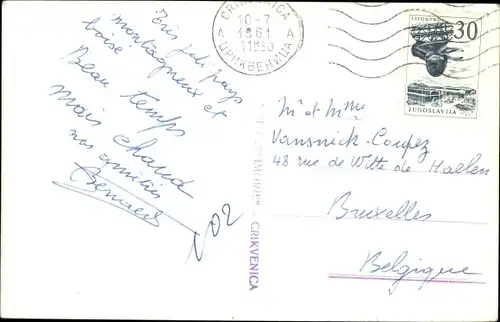 Très joli pays
montagneux et
boisé
Beau temps
mais chaud
nos amitiés
Bernard
102
CRIKVENICA
10-7
A 1961 A
11830
ЦРИКВЕНИЦА
30
JUGOSLAVIJA
CRIKVENICA
Mr et Mme
Vansnick-Coupez
48 rue de Witte de Haelen
Bruxelles
Belgique